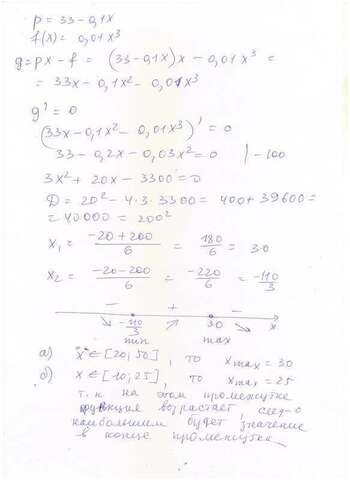 p = 33 - 0,1x
f(x) = 0,01x³
g = px - f = (33 - 0,1x)x - 0,01x³ =
= 33x - 0,1x² - 0,01x³
g' = 0
(33x - 0,1x² - 0,01x³)' = 0
33 - 0,2x - 0,03x² = 0 | -100
3x² + 20x - 3300 = 0
D = 20² - 4·3·3300 = 400 + 39600 =
= 40000 = 200²
x₁ = (-20 + 200)/6 = 180/6 = 30
x₂ = (-20 - 200)/6 = -220/6 = -110/3
- + -
-110/3 30 x
min max
а) x ∈ [20; 50], то xmax = 30
б) x ∈ [10; 25], то xmax = 25
т.к на этом промежутке
функция возрастает, след-о
наибольшем будет значение
в конце промежутка